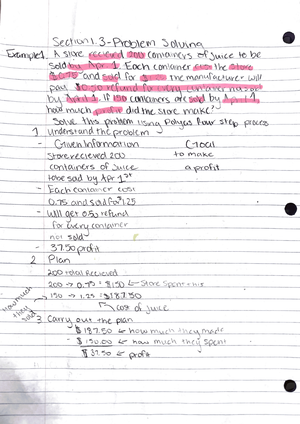 Section 1.3 - Problem Solving
Example 1. A store recieved 200 containers of juice to be
sold by Apr 1. Each container cost the store
$0.75 and sold for $ the manufacturer will
pay $0.50 refund for every container not sold
by April 1. If 150 containers are sold by April 1,
how much profit did the store make?
Solve this problem using Polyas four step process
1 Understand the problem
- Given Information Goal
Store recieved 200 to make
containers of juice a profit
to be sold by Apr 1st
- Each container cost
0.75 and sold for 1.25
- Will get 0.50 refund
for every container
not sold
- 37.50 profit
2 Plan
200 total recieved
200 → 0.75 = $150 ← Store spent this
150 → 1.25 = $187.50
how much they sold
cost of juice
3 Carry out the plan
$187.50 ← how much they made
- $150.00 ← how much they spent
$37.50 ← profit